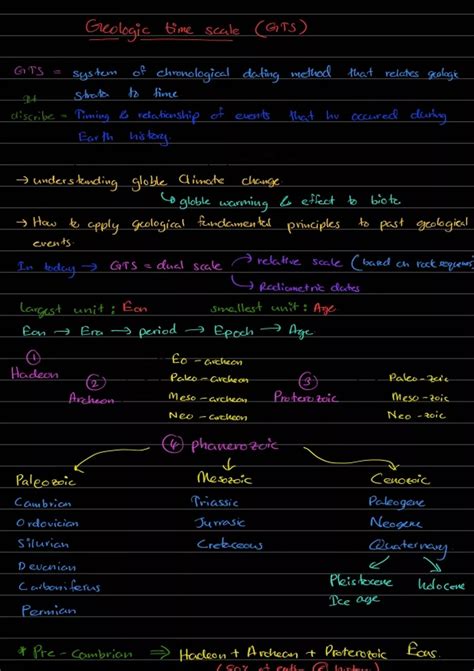 Geologic time scale (GTS)
GTS = system of chronological dating method that relates geologic
strata to time
discribe = Timing & relationship of events that hv occured during
Earth history.
→ understanding globle Climate change.
↳ globle warming & effect to biota
→ How to apply geological fundamental principles to past geological
events.
In today → GTS = dual scale → relative scale (based on rock sequences
→ Radiometric dates
largest unit : Eon smallest unit : Age
Eon → Era → period → Epoch → Age
① Hadeon
② Archeon
Eo - archeon
Paleo - archeon
Meso - archeon
Neo - archeon
③ Proterozoic
Paleo - zoic
Meso - zoic
Neo - zoic
④ phanerozoic
Paleozoic
Cambrian
Ordovician
Silurian
Devonian
Carboniferus
Permian
Mesozoic
Triassic
Jurrasic
Cretaceous
Cenozoic
Paleogene
Neogene
Quaternary
Pleistocene
Ice age
Holocene
* Pre - Cambrian → Hadeon + Archeon + Proterozoic Eons.